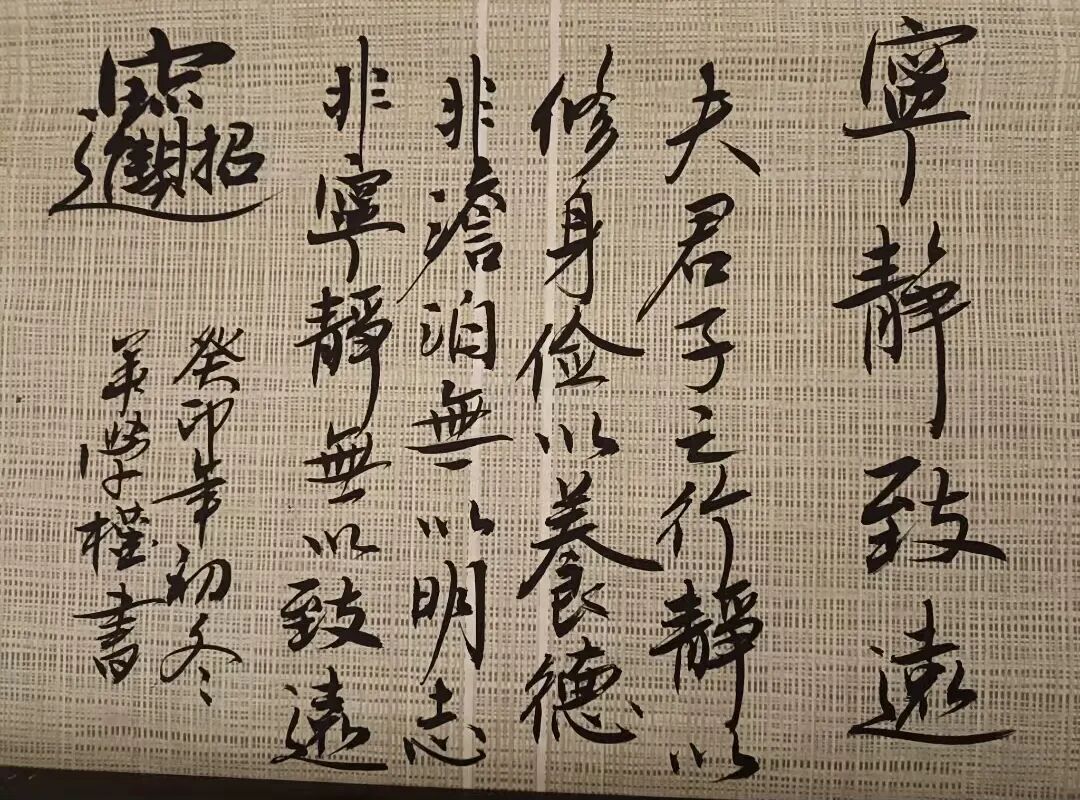 寧靜致遠
夫君子之行靜以
修身俭以養德
非澹泊無以明志
非寧靜無以致遠
招財進寶
癸卯年初冬
書